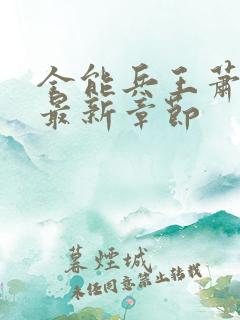 全能兵王萧
最新章节
暮煙城
未经同意禁止转载